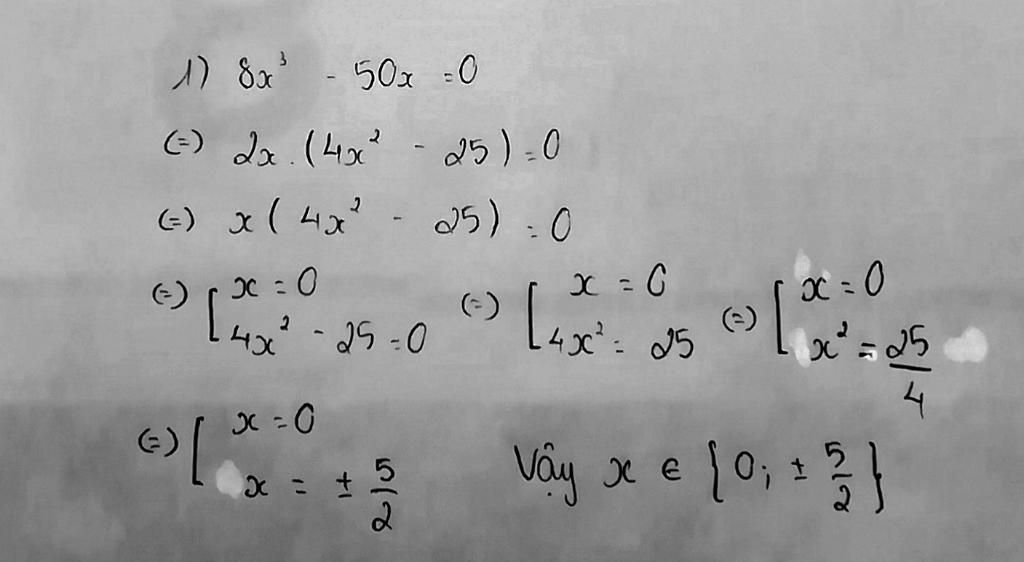 1) 8x³ - 50x = 0
(=) 2x . (4x² - 25) = 0
(=) x ( 4x² - 25) = 0
(=) [ x = 0 (=) [ x = 0 (=) [ x = 0
4x² - 25 = 0 4x² = 25 x² = 25/4
(=) [ x = 0
x = ± 5/2 Vậy x ∈ {0; ± 5/2}